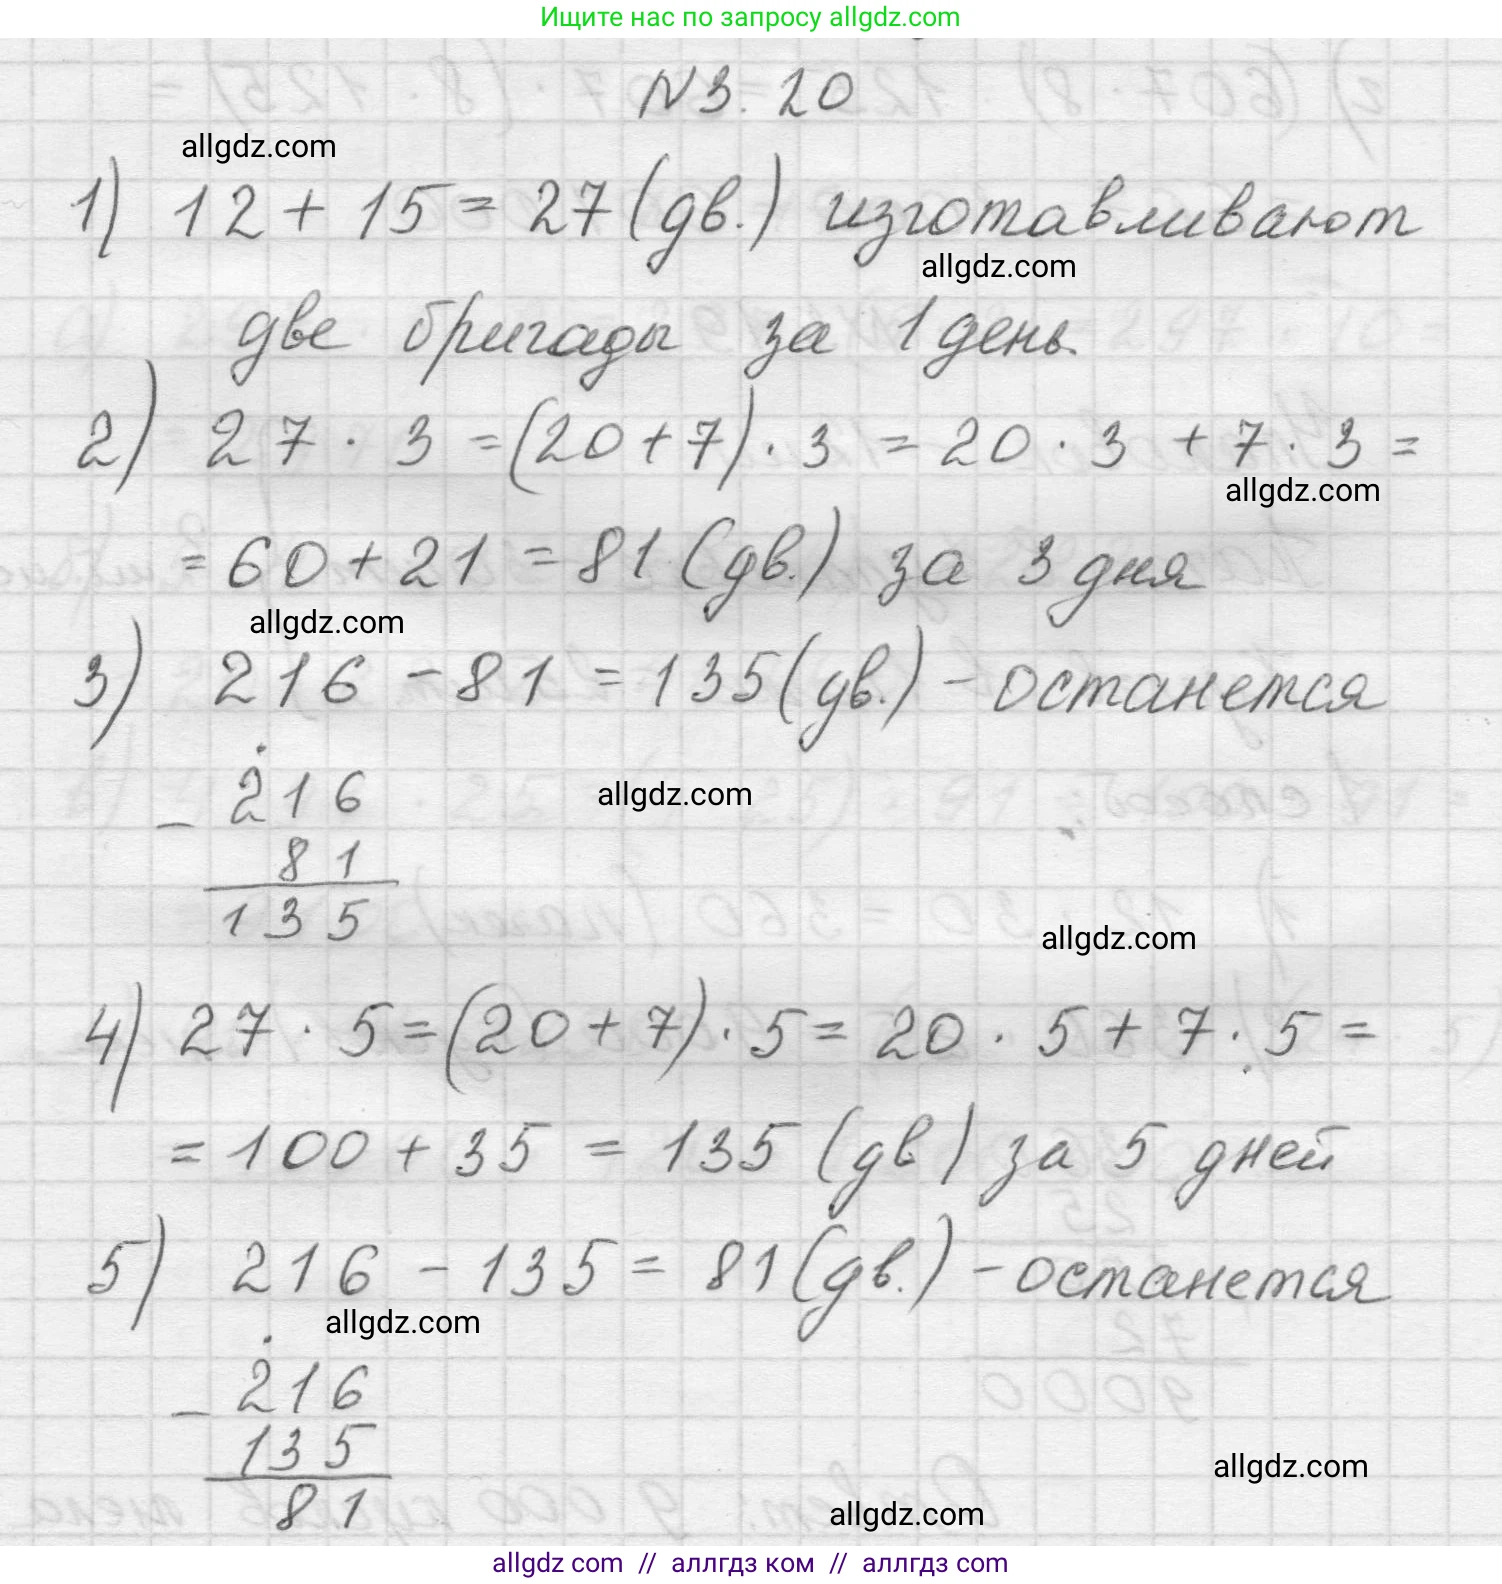 Ищите нас по запросу allgdz.com
N 3.20
allgdz.com
1) 12 + 15 = 27 (дв.) изготавливают
allgdz.com
две бригады за 1 день.
2) 27 · 3 = (20 + 7) · 3 = 20 · 3 + 7 · 3 =
allgdz.com
= 60 + 21 = 81 (дв.) за 3 дня
allgdz.com
3) 216 - 81 = 135 (дв.) - останется
216
allgdz.com
-
81
135
allgdz.com
4) 27 · 5 = (20 + 7) · 5 = 20 · 5 + 7 · 5 =
= 100 + 35 = 135 (дв) за 5 дней
5) 216 - 135 = 81 (дв.) - останется
allgdz.com
216
-
135
allgdz.com
81
allgdz.com
allgdz com // аллгдз ком // аллгдз com